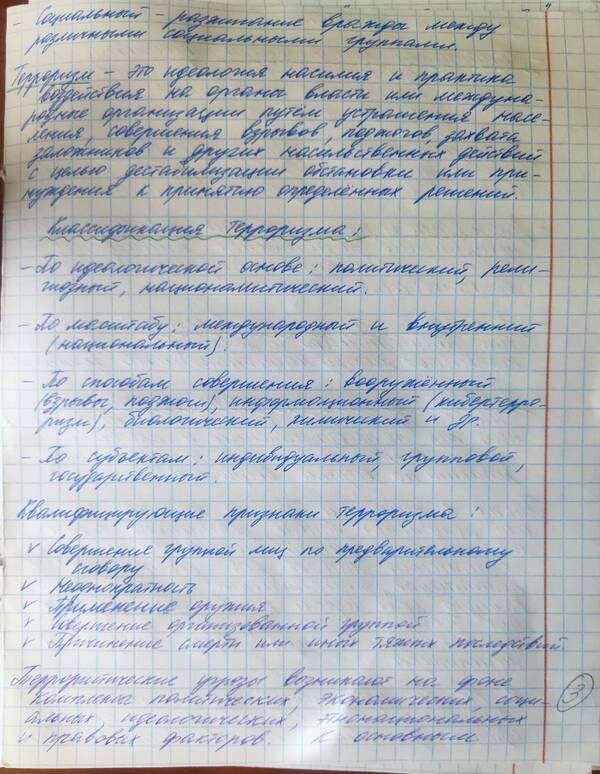 - Социальный - разжигание вражды между
различными социальными группами.
Терроризм - это идеология насилия и практика
воздействия на органы власти или междуна-
родные организации путём устрашения насе-
ления, совершения взрывов, поджогов, захвата
заложников и других насильственных действий
с целью дестабилизации обстановки или при-
нуждения к принятию определённых решений.
Классификация терроризма:
- По идеологической основе: политический, рели-
гиозный, националистический.
- По масштабу: международный и внутренний
(национальный).
- По способам совершения: вооружённый
(взрывы, поджоги), информационный (кибертерро-
ризм), биологический, химический и др.
- По субъектам: индивидуальный, групповой,
государственный.
Квалифицирующие признаки терроризма:
v Совершение группой лиц по предварительному
сговору
v Неоднократность
v Применение оружия
v Совершение организованной группой
v Причинение смерти или иных тяжких последствий.
Террористические угрозы возникают на фоне
комплекса политических, экономических, соци-
альных, идеологических, этнонациональных
и правовых факторов. К основным
3